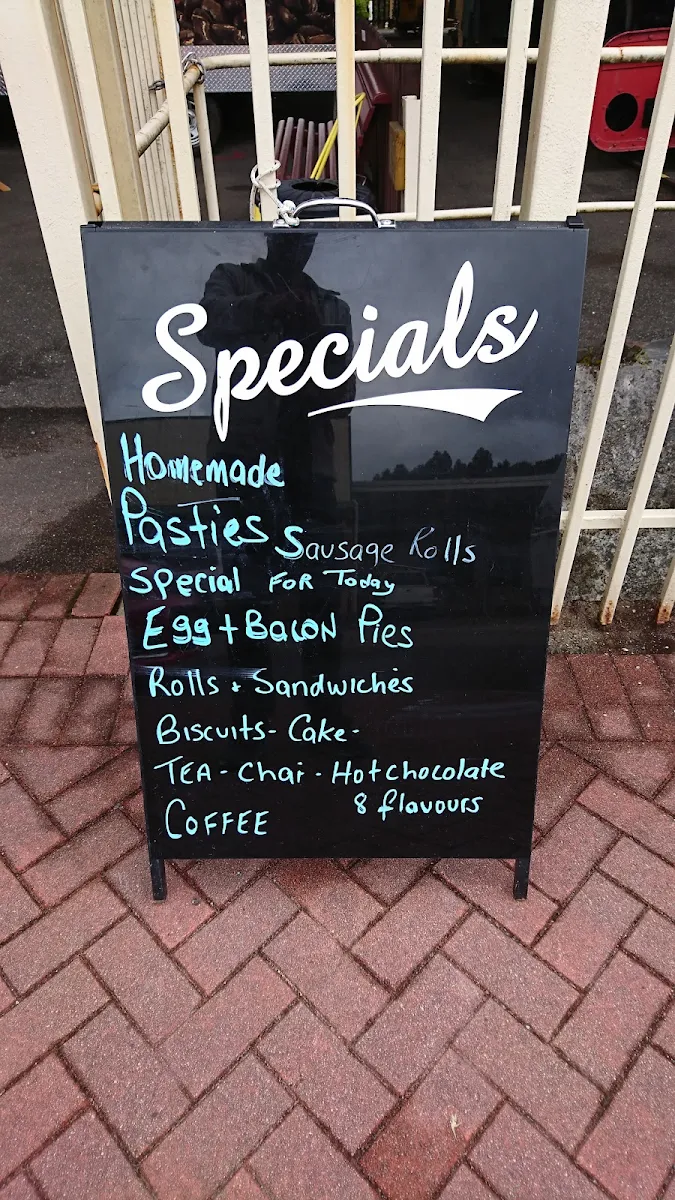 Specials
Homemade
Pasties Sausage Rolls
Special FOR Today
Egg + Bacon Pies
Rolls + Sandwiches
Biscuits - Cake -
TEA - Chai - Hot chocolate
8 flavours
COFFEE